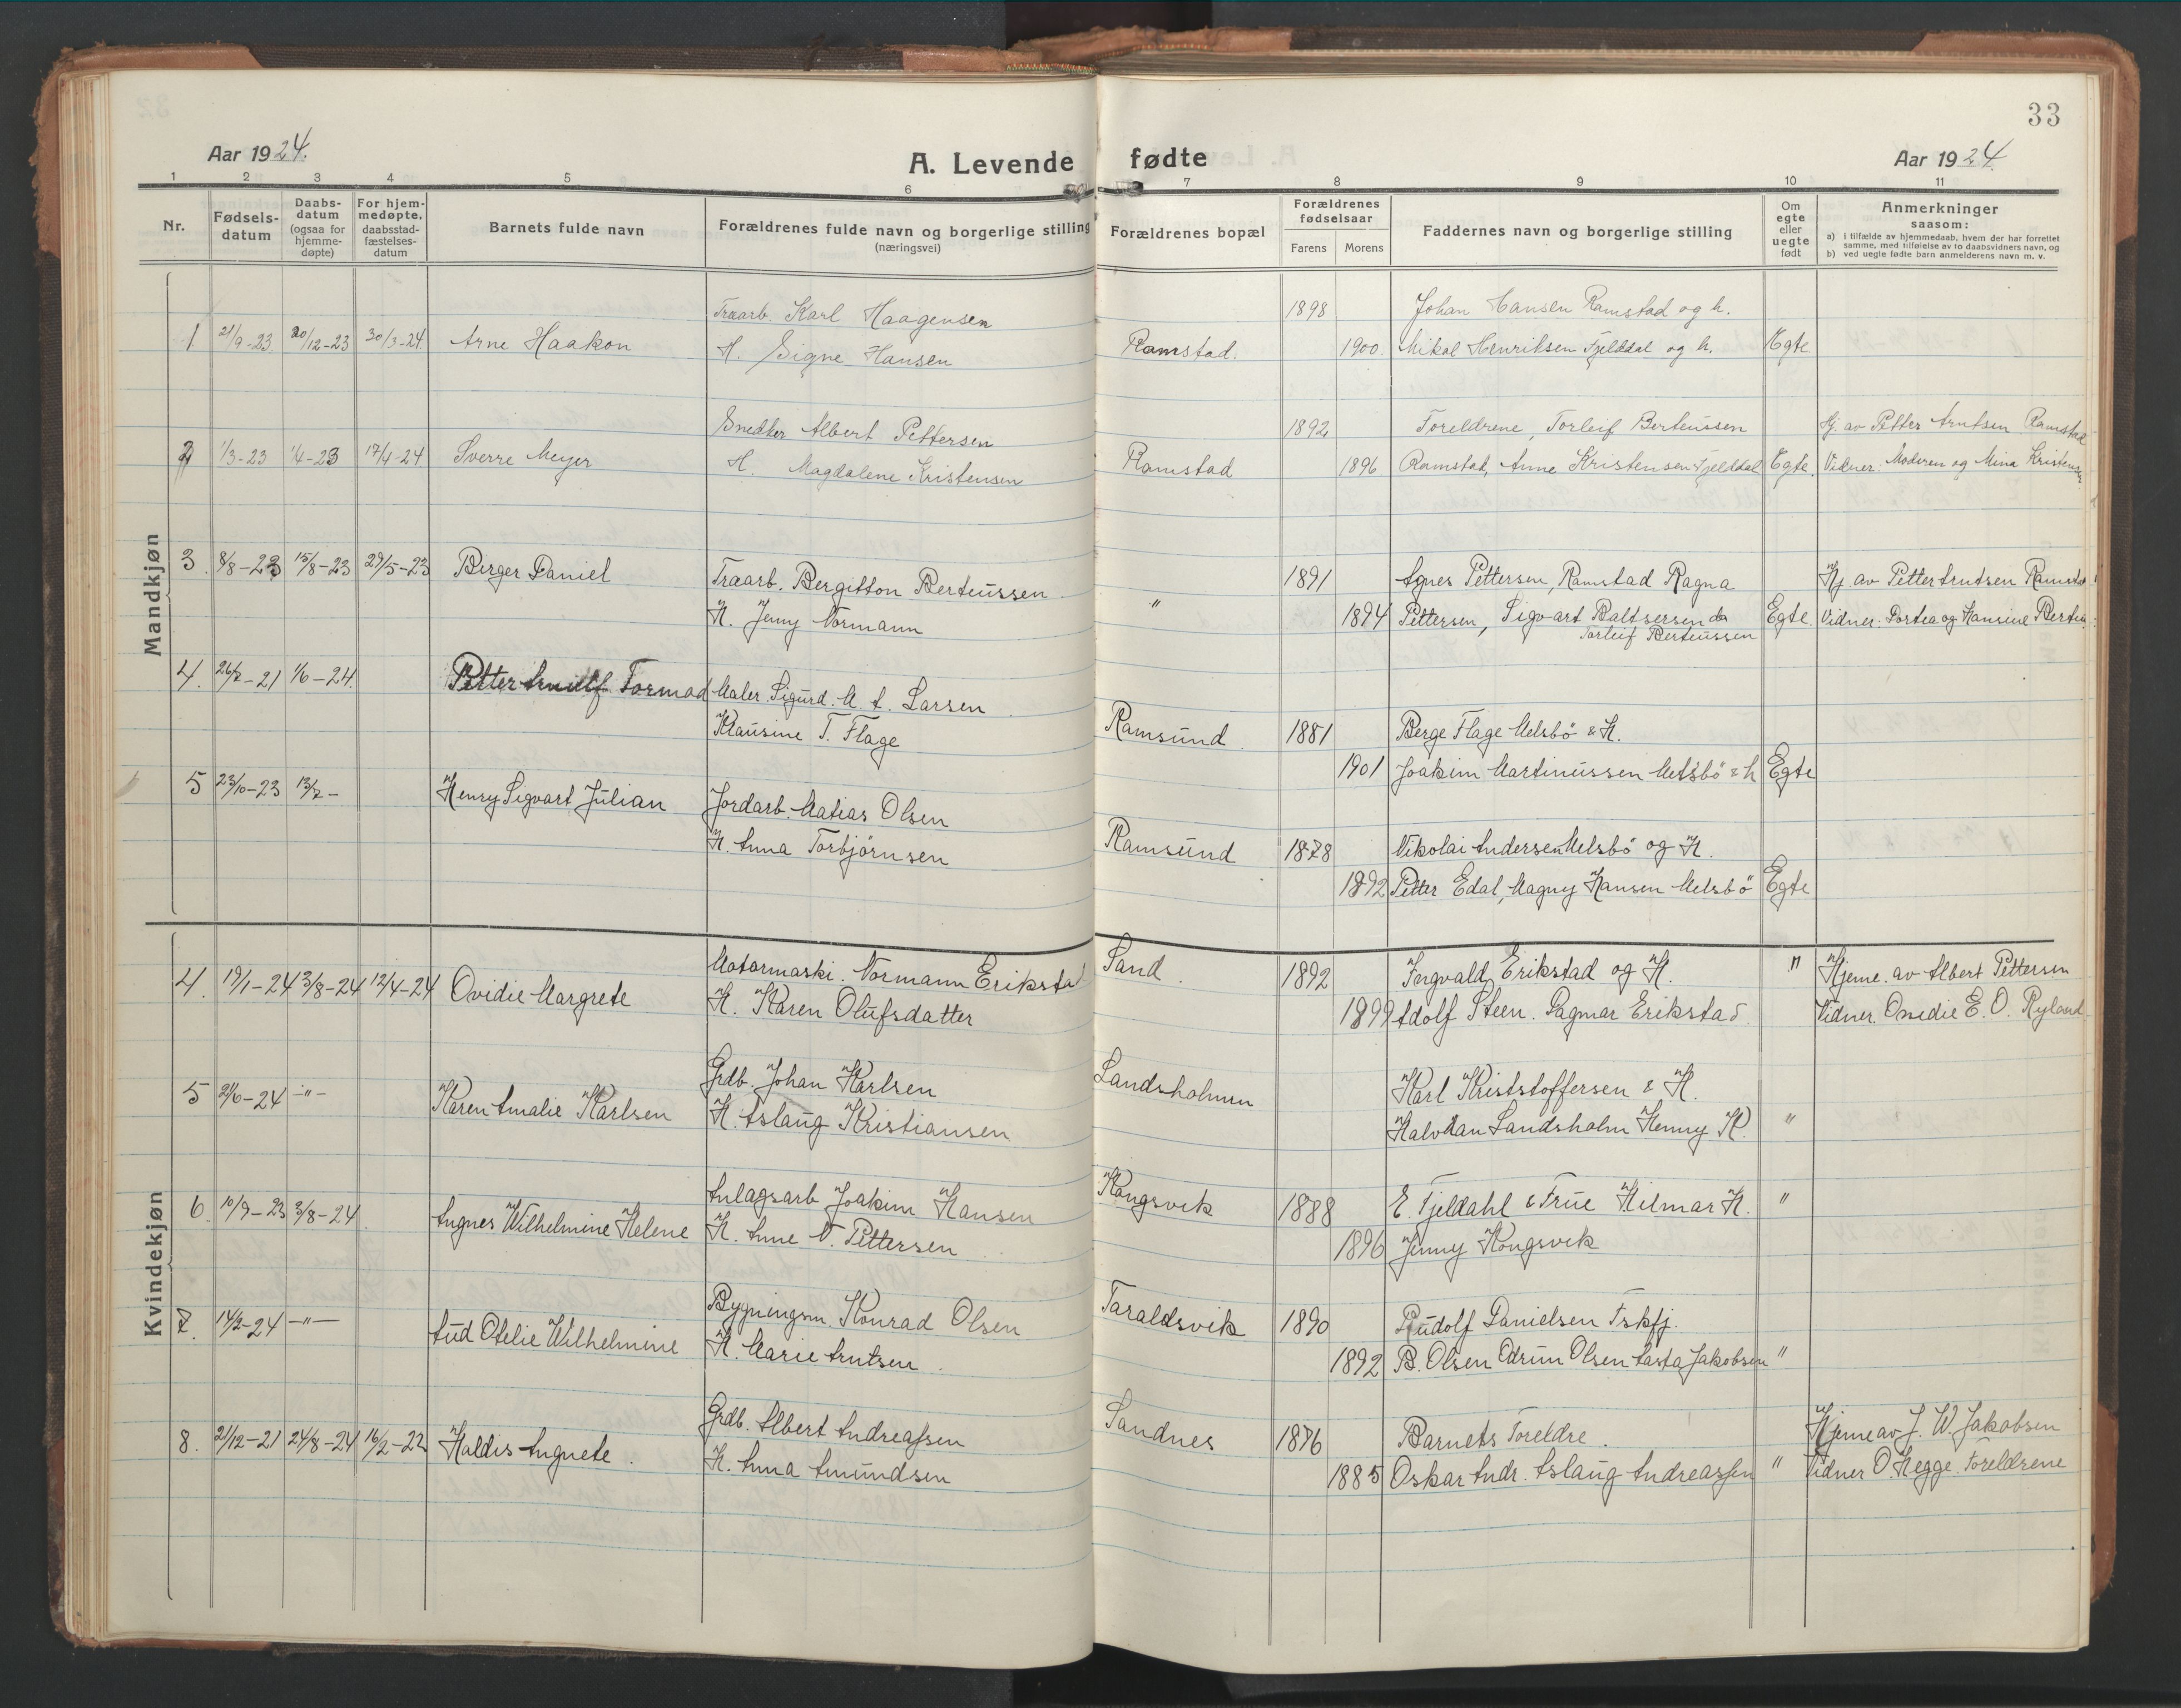 33
Aar 1924.
A. Levende fødte
Aar 1924
1 2 3 4 5 6 7 8 9 10 11
Nr.
Fødsels-
datum
Daabs-
datum
(ogsaa for
hjemme-
døpte)
For hjem-
medøpte,
daabsstad-
fæstelses-
datum
Barnets fulde navn
Forældrenes fulde navn og borgerlige stilling
(næringsvei)
Forældrenes bopæl
Forældrenes
fødselsaar
Farens Morens
Faddernes navn og borgerlige stilling
Om
egte
eller
uegte
født
Anmerkninger
saasom:
a) i tilfælde av hjemmedaab, hvem der har forrettet
samme, med tilføielse av to daabsvidners navn, og
b) ved uegte fødte barn anmelderens navn m. v.
Mandkjøn
Traarb. Karl Haagensen 1898 Johan Hansen Ramstad og h.
1 21/9-23 20/12-23 30/3-24. Arne Haakon H. Signe Hansen Ramstad. 1900. Mikal Henriksen Fjelddal og h. Egte
Snedker Albert Pettersen 1892 Foreldrene, Torleif Berteussen Hj. av Petter Arntsen Ramstad
2 1/3-23 1/4-23 17/4-24 Sverre Meyer H. Magdalene Kristensen Ramstad 1896 Ramstad, Anne Kristensen Fjelddal Egte. Vidner: Moderen og Mina Kristensen
3. 8/8-23 15/8-23 29/5-23 Birger Daniel Traarb. Bergitton Berteussen 1891 Agnes Pettersen, Ramstad Ragna Hj. av Petter Arntsen Ramstad
H. Jenny Normann " 1894 Pettersen, Sigvart Baltsersen da Egte. Vidner: Dortea og Hansine Berteu
Torleif Berteussen
4. 26/7-21 1/6-24. Petter Arnulf Tormod Maler. Sigurd. M. A. Larsen
Klausine T. Flage Ramsund. 1881 Berge Flage Melsbö & H.
1901 Joakim Martinussen Melsbö & h Egte
5 23/10-23 13/7- Henry Sigvart Julian Jordarb. Matias Olsen
H. Anna Torbjörnsen Ramsund 1878 Nikolai Andersen Melsbö og H.
1892 Petter Edal, Magny Hansen Melsbö Egte
Kvindekjøn
4. 19/1-24 3/8-24 12/4-24 Ovidie Margrete Motormaski. Normann Erikstad Sand. 1892 Ingvald Erikstad og H. " Hjeme. av Albert Pettersen
H. Karen Olufsdatter 1899 Adolf Steen. Dagmar Erikstad. Vidner. Ovidie E. O. Ryland
5 21/6-24 -"- Karen Amalie Karlsen Grdb. Johan Karlsen Sandsholmen Karl Kriststoffersen & H.
H. Aslaug Kristiansen Halvdan Sandsholm Henny K. "
6. 10/9-23 3/8-24. Angnes Wilhelmine Helene Anlagsarb Joakim Hansen Kongsvik 1888 E. Fjeldahl & Frue Hilmar H. "
H. Anne N. Pettersen 1896 Jenny Kongsvik
7. 14/2-24 -"- Aud Otelie Wilhelmine Bygningsm. Konrad Olsen Taraldsvik 1890 Rudolf Danielsen Fskfj.
H. Marie Arntsen. 1892 B. Olsen Odrun Olsen Aasta Jakobsen "
8. 21/12-21 24/8-24 16/2-22 Haldis Angnete. Grdb. Albert Andreassen Sandnes 1876 Barnets Foreldre. Hjeme av J. W. Jakobsen
H. Anna Amundsen 1885 Oskar Andr. Aslaug Andreassen " Vidner O. Hegge. Foreldrene